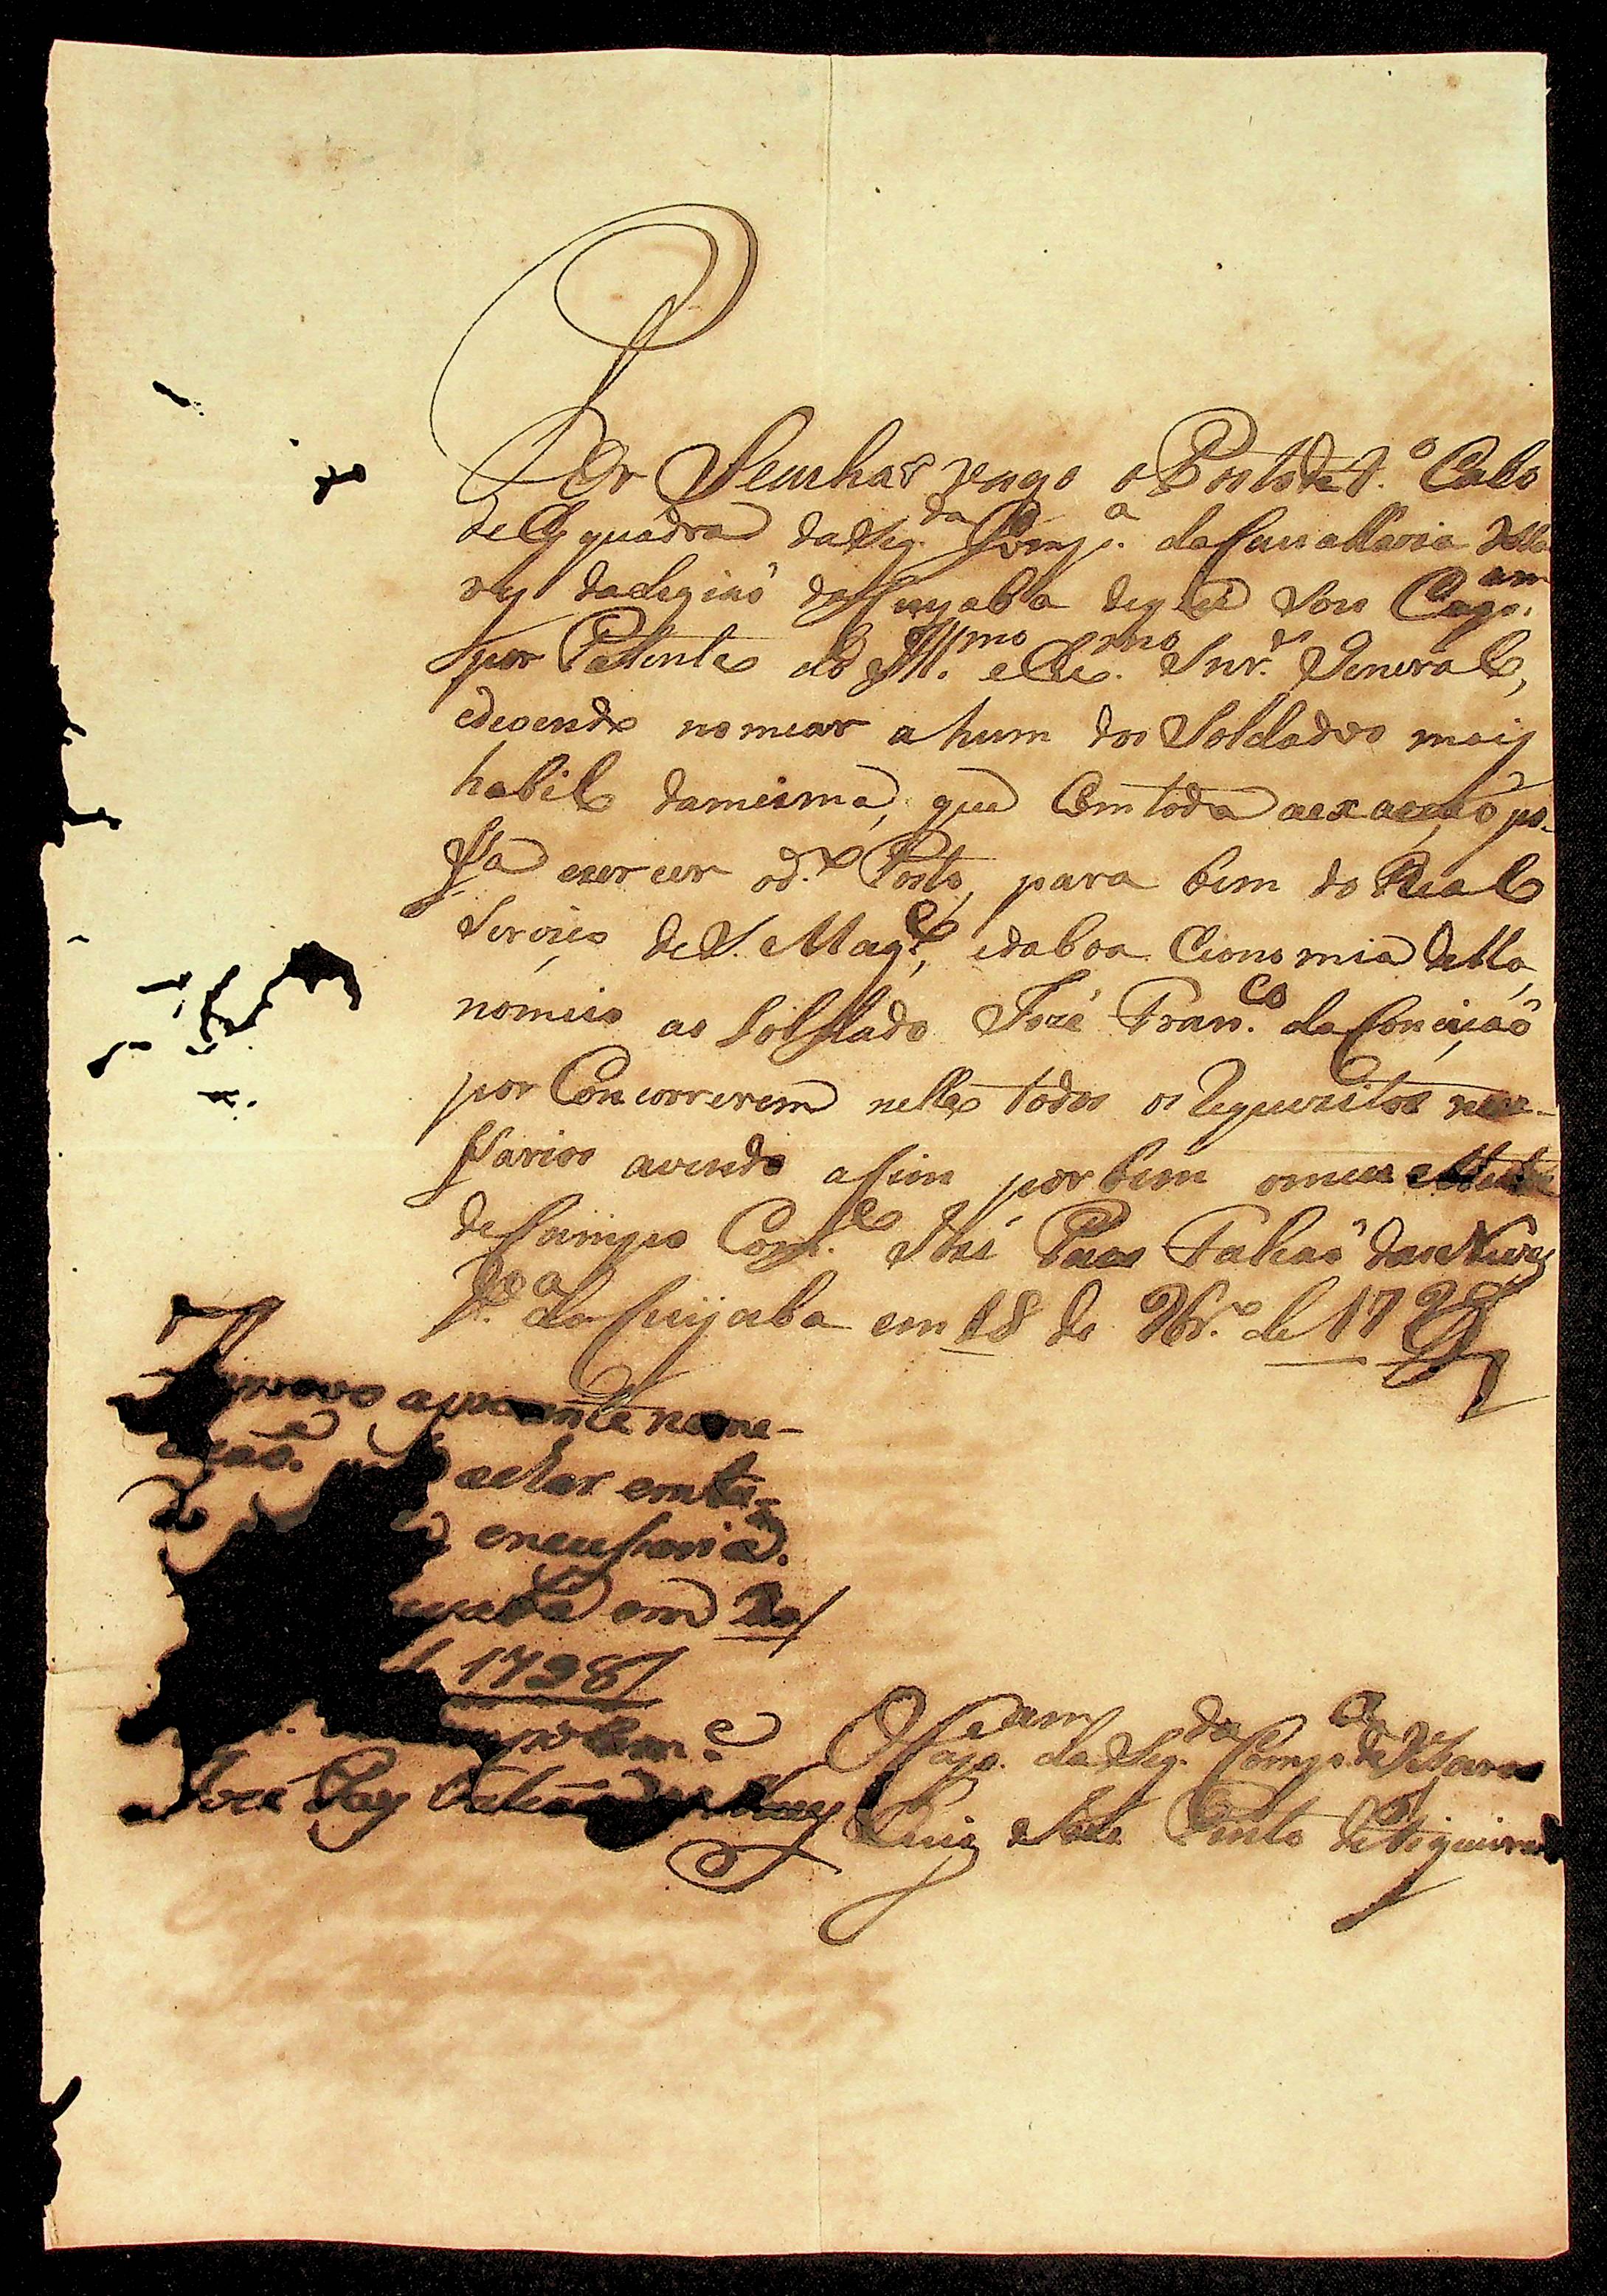 Por Se achar vago o Posto de 1.º Cabo
de Esquadra da Seg.da Comp.a da Cavallaria
da Legiaõ do Cuyaba de que Sou Cap.am
por Patente do Ill.mo e Ex.mo Snr.' General,
edevendo nomear a hum dos Soldados mais
habil damesma, que Com toda aexacçaõ po-
ssa exercer o d.º Posto, para bem do Real
Serviço de S. Mag.e, edaboa Economia della,
nomeio ao Soldado José Fran.co da Conceiçaõ
por Concorrerem nelle todos os Requezitos nece-
ssarios avendo assim por bem omeu Mestre
de Campo Com.e José Paes Falcaõ das Neves
V.a do Cuyaba em 18 de 9br.º de 1798
Aprovo aprezente nome-
açaõ. achar
eneccessaria.
em 20
1798
José Paes Falcaõ das Neves
O Cap.am da Seg.da Comp.a de
Luis José Pinto de Figueiredo